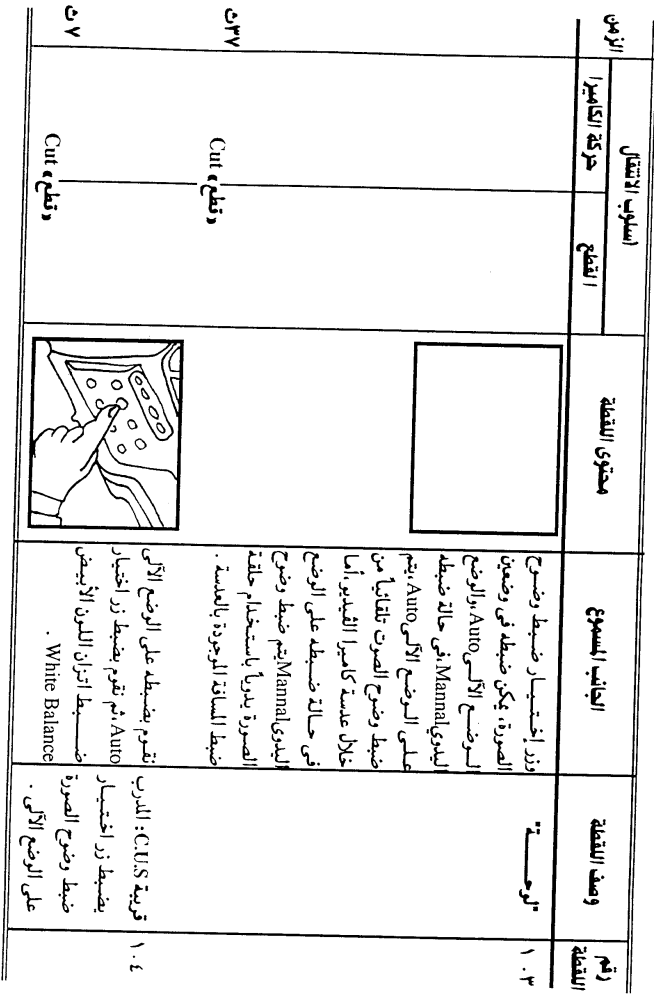 رقم
اللقطة
وصف اللقطة
الجانب المسموع
محتوى اللقطة
اسلوب الانتقال
القطع
حركة الكاميرا
الزمن
١٠٣
"لوحـــــة"
وزر إختـيـــار ضـبــط وضــوح
الصورة، يمكن ضبطه فى وضعين
الـوضـع الآلـــى Auto، والوضع
اليدوى Mannal، فى حالة ضبطه
عـلـى الـوضـع الآلـى Auto، يتم
ضبط وضوح الصوت تلقائياً من
خلال عدسة كاميرا الڤيديو، أما
فى حـالـة ضـبـطه على الوضع
اليدوى Mannal يتم ضبط وضوح
الصورة يدوياً باستخدام حلقة
ضبط المسافة الموجودة بالعدسة .
«قطع» Cut
٣٧ث
١٠٤
قريبة C.U.S : المدرب
بـضـبـط زر اخـتـيـــار
ضبط وضوح الصورة
على الوضع الآلى .
نقـوم بضـبطه على الوضع الآلى
Auto، ثم نقوم بضبط زر اختيار
ضـــبط اتزان اللـون الأبيض
White Balance .
«قطع» Cut
٧ث